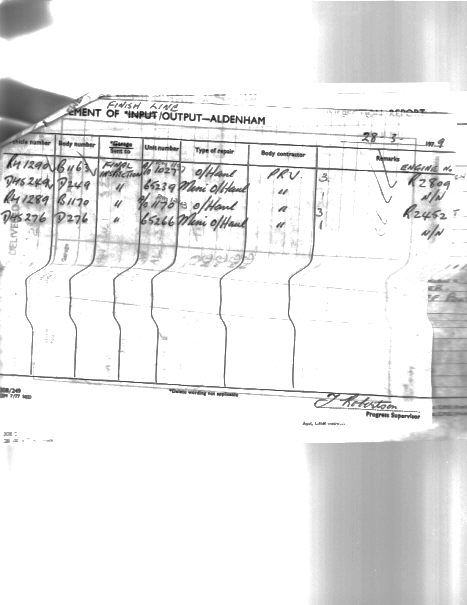 FINISH LINE
EMENT OF *INPUT/OUTPUT—ALDENHAM
28-3- 1979
hicle number Body number *Garage Sent to Unit number Type of repair Body contractor Remarks ENGINE No
RM1290 B1163 FINAL INSPECTION 1027 O/Haul PRV 3 R2809
DMS249 D249 " 65239 Mini O/Haul " 1 N/N
RM1289 B1170 " 1170 O/Haul " 3 R2452
DMS276 D276 " 65266 Mini O/Haul " 1 N/N
*Delete wording not applicable
J Robertson
Progress Supervisor